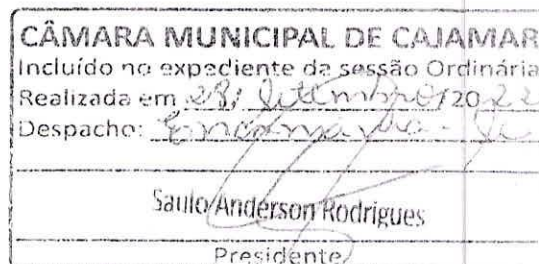 CÂMARA MUNICIPAL DE CAJAMAR
Incluído no expediente da sessão Ordinária
Realizada em 28/ Setembro/2022
Despacho: Encaminha-se
Saulo Anderson Rodrigues
Presidente